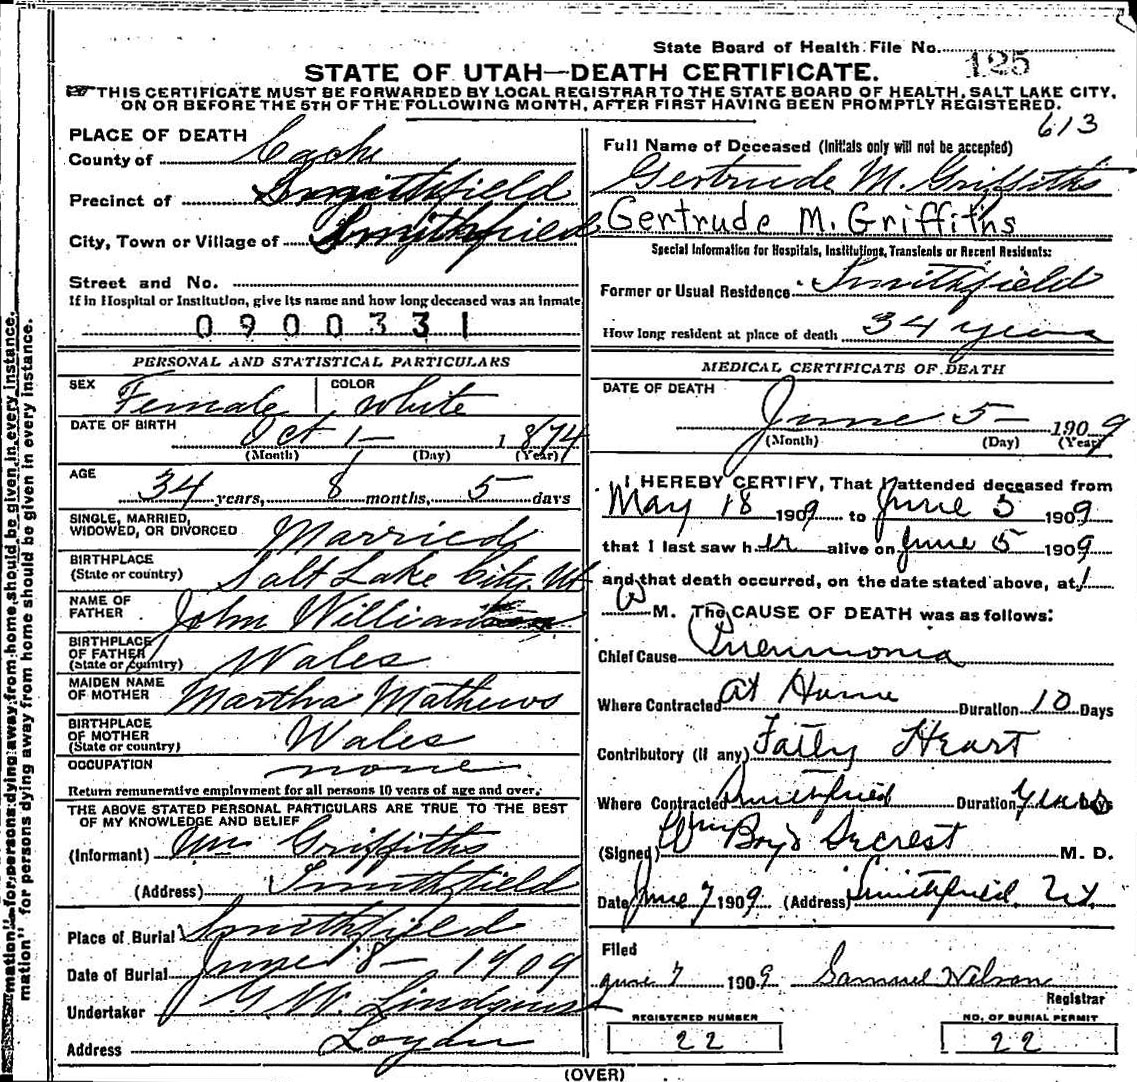 State Board of Health File No. 125
STATE OF UTAH—DEATH CERTIFICATE.
THIS CERTIFICATE MUST BE FORWARDED BY LOCAL REGISTRAR TO THE STATE BOARD OF HEALTH, SALT LAKE CITY,
ON OR BEFORE THE 5TH OF THE FOLLOWING MONTH, AFTER FIRST HAVING BEEN PROMPTLY REGISTERED.
613
PLACE OF DEATH
County of Cache
Precinct of Smithfield
City, Town or Village of Smithfield
Street and No.
If in Hospital or Institution, give its name and how long deceased was an inmate
0900331
PERSONAL AND STATISTICAL PARTICULARS
SEX Female COLOR White
DATE OF BIRTH Oct 1— 1874
(Month) (Day) (Year)
AGE 34 years, 8 months, 5 days
SINGLE, MARRIED,
WIDOWED, OR DIVORCED Married
BIRTHPLACE
(State or country) Salt Lake City, Ut
NAME OF
FATHER John Williams
BIRTHPLACE
OF FATHER
(State or country) Wales
MAIDEN NAME
OF MOTHER Martha Mathews
BIRTHPLACE
OF MOTHER
(State or country) Wales
OCCUPATION none
Return remunerative employment for all persons 10 years of age and over.
THE ABOVE STATED PERSONAL PARTICULARS ARE TRUE TO THE BEST
OF MY KNOWLEDGE AND BELIEF
(Informant) Wm Griffiths
(Address) Smithfield
Place of Burial Smithfield
Date of Burial June 8— 1909
Undertaker G. W. Lindquist
Address Logan
Full Name of Deceased (Initials only will not be accepted)
Gertrude M. Griffiths
Gertrude M. Griffiths
Special Information for Hospitals, Institutions, Transients or Recent Residents:
Former or Usual Residence Smithfield
How long resident at place of death 34 years
MEDICAL CERTIFICATE OF DEATH
DATE OF DEATH
June 5— 1909
(Month) (Day) (Year)
I HEREBY CERTIFY, That I attended deceased from
May 18 1909 to June 5 1909
that I last saw her alive on June 5 1909
and that death occurred, on the date stated above, at 1
M. The CAUSE OF DEATH was as follows:
Chief Cause Pneumonia
Where Contracted At Home Duration 10 Days
Contributory (if any) Fatty Heart
Where Contracted Smithfield Duration years Days
(Signed) Wm Boyd Secrest M. D.
Date June 7 1909 (Address) Smithfield Ut.
Filed
June 7 1909 Samuel Nelson
Registrar
REGISTERED NUMBER
22
NO. OF BURIAL PERMIT
22
(OVER)
mation" for persons dying away from home should be given in every instance.
mation" for persons dying away from home should be given in every instance.